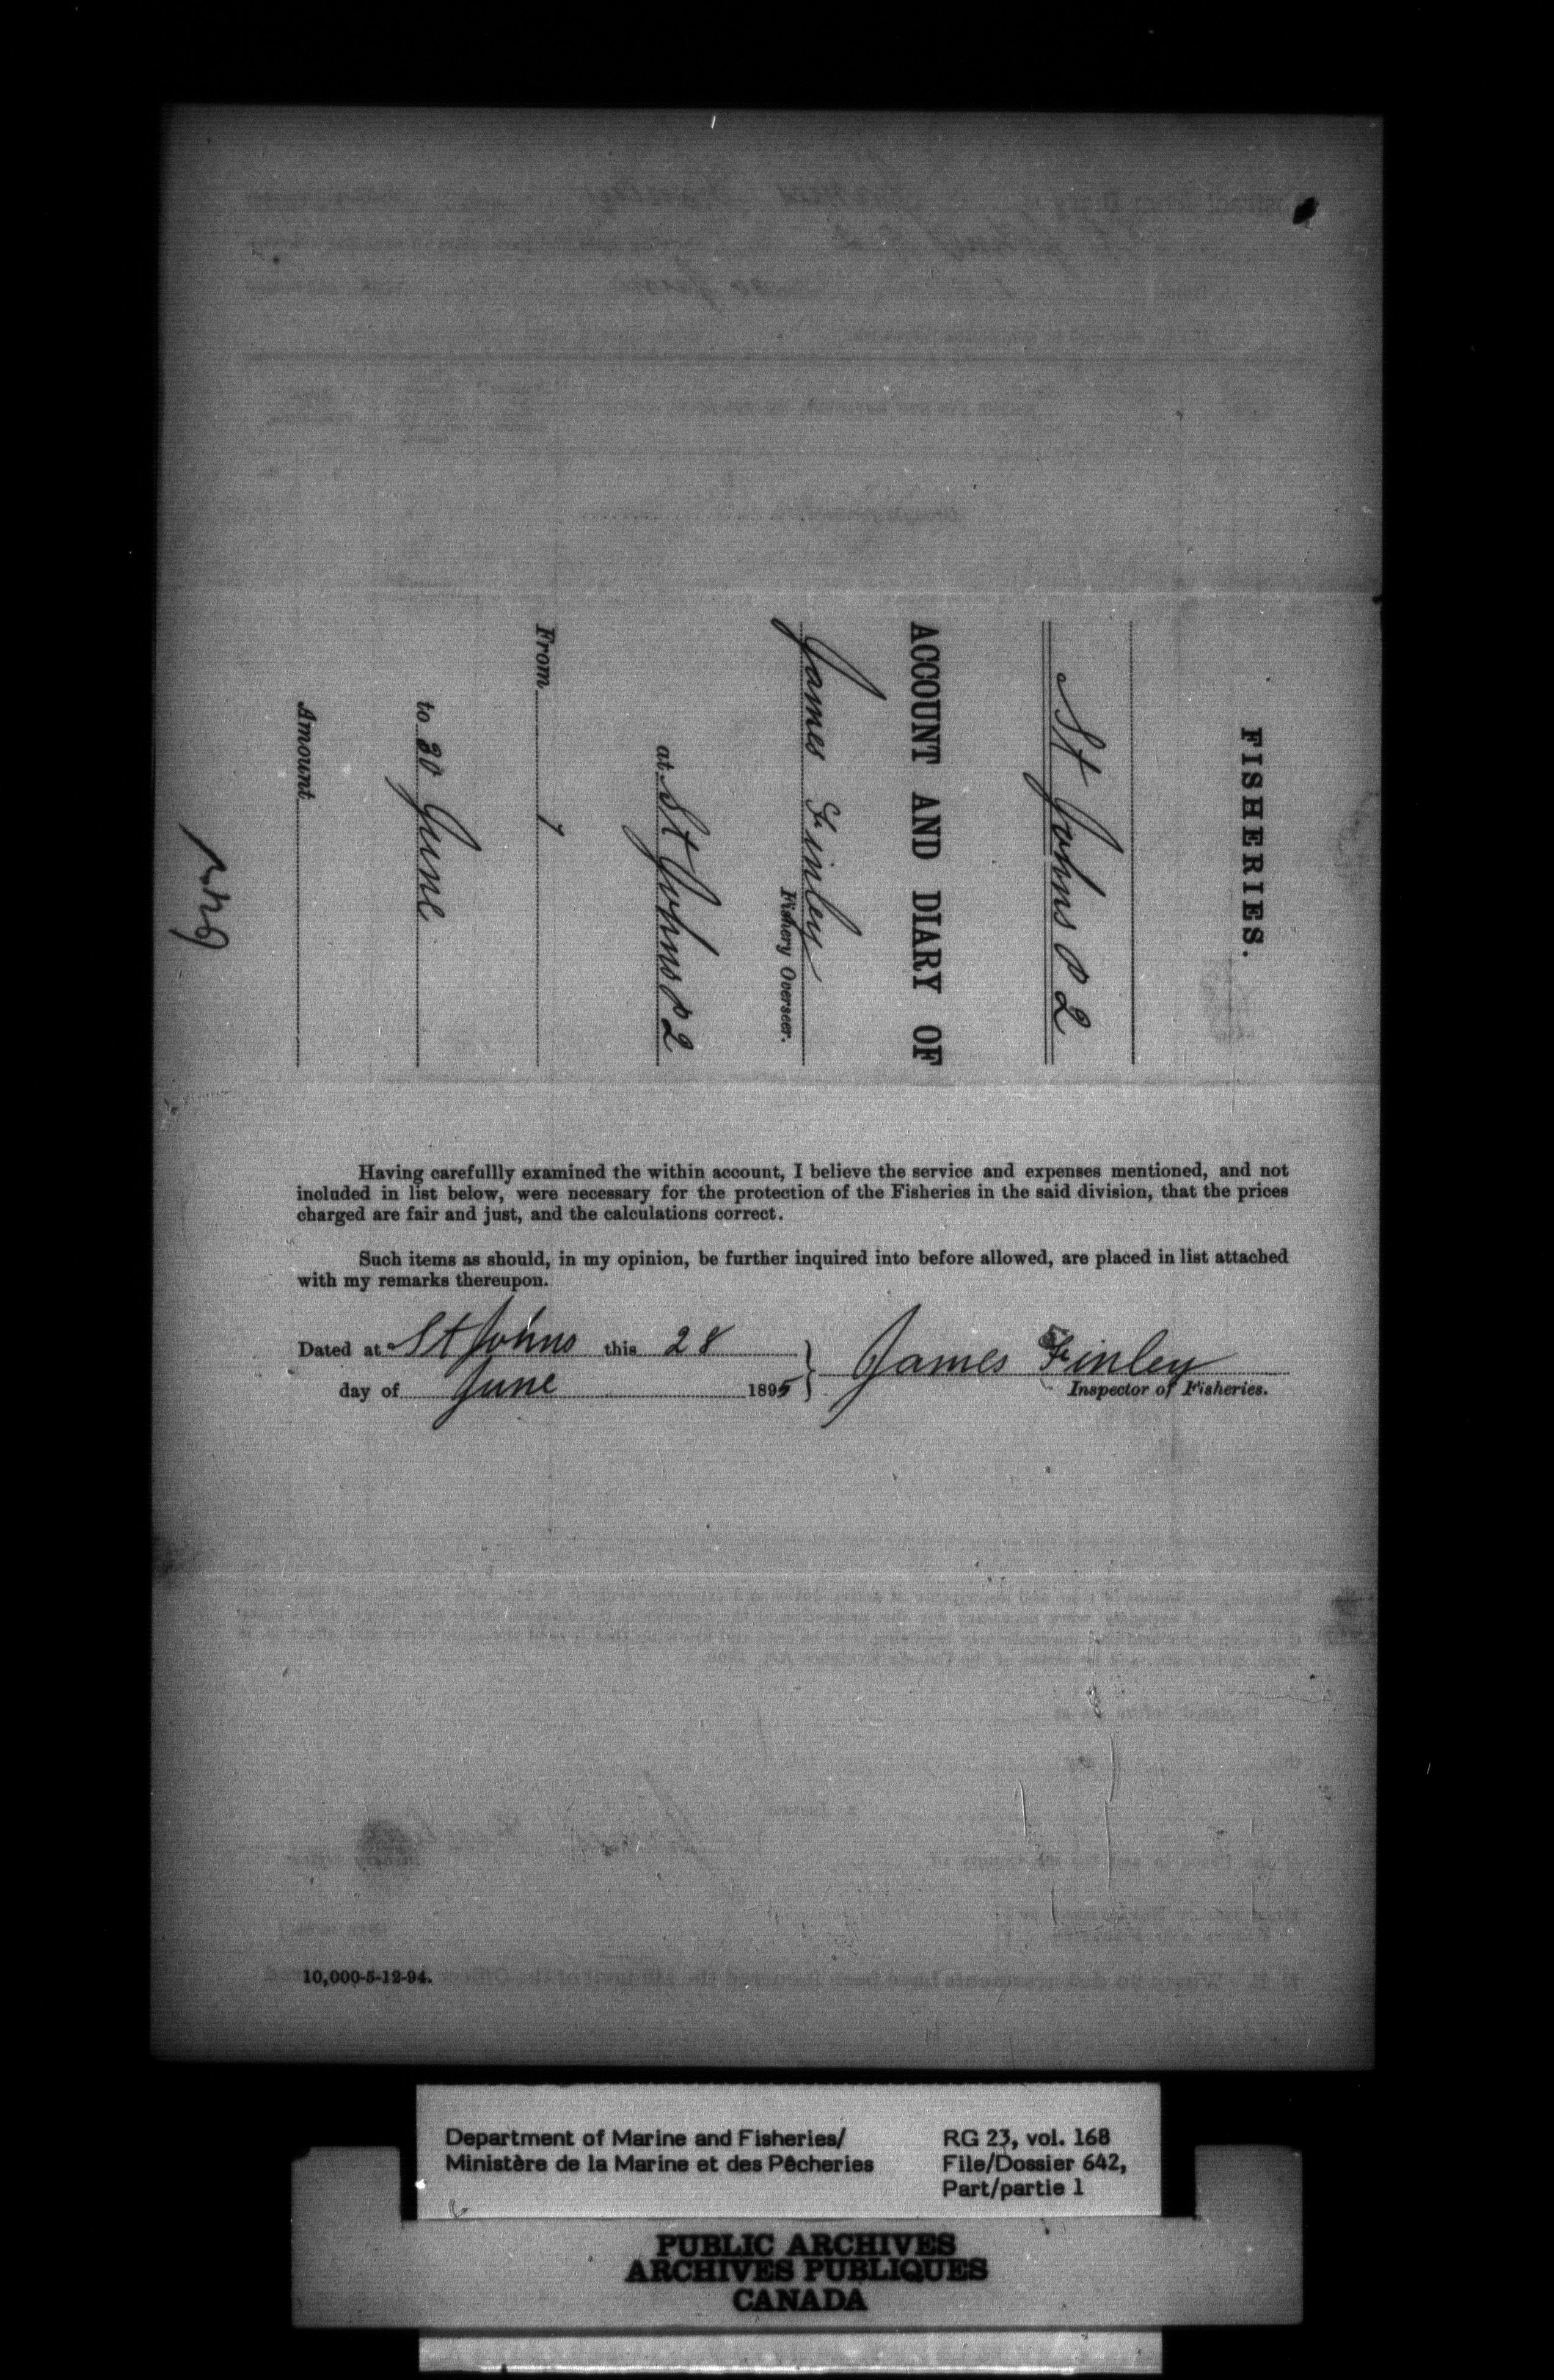 FISHERIES.
St Johns P 2
ACCOUNT AND DIARY OF
James Finley
Fishery Overseer.
at St Johns P 2
From 1
to 30 June
Amount
Having carefullly examined the within account, I believe the service and expenses mentioned, and not
included in list below, were necessary for the protection of the Fisheries in the said division, that the prices
charged are fair and just, and the calculations correct.
Such items as should, in my opinion, be further inquired into before allowed, are placed in list attached
with my remarks thereupon.
Dated at St Johns this 28
day of June 1895
James Finley
Inspector of Fisheries.
10,000-5-12-94.
Department of Marine and Fisheries/
Ministère de la Marine et des Pêcheries
RG 23, vol. 168
File/Dossier 642,
Part/partie 1
PUBLIC ARCHIVES
ARCHIVES PUBLIQUES
CANADA